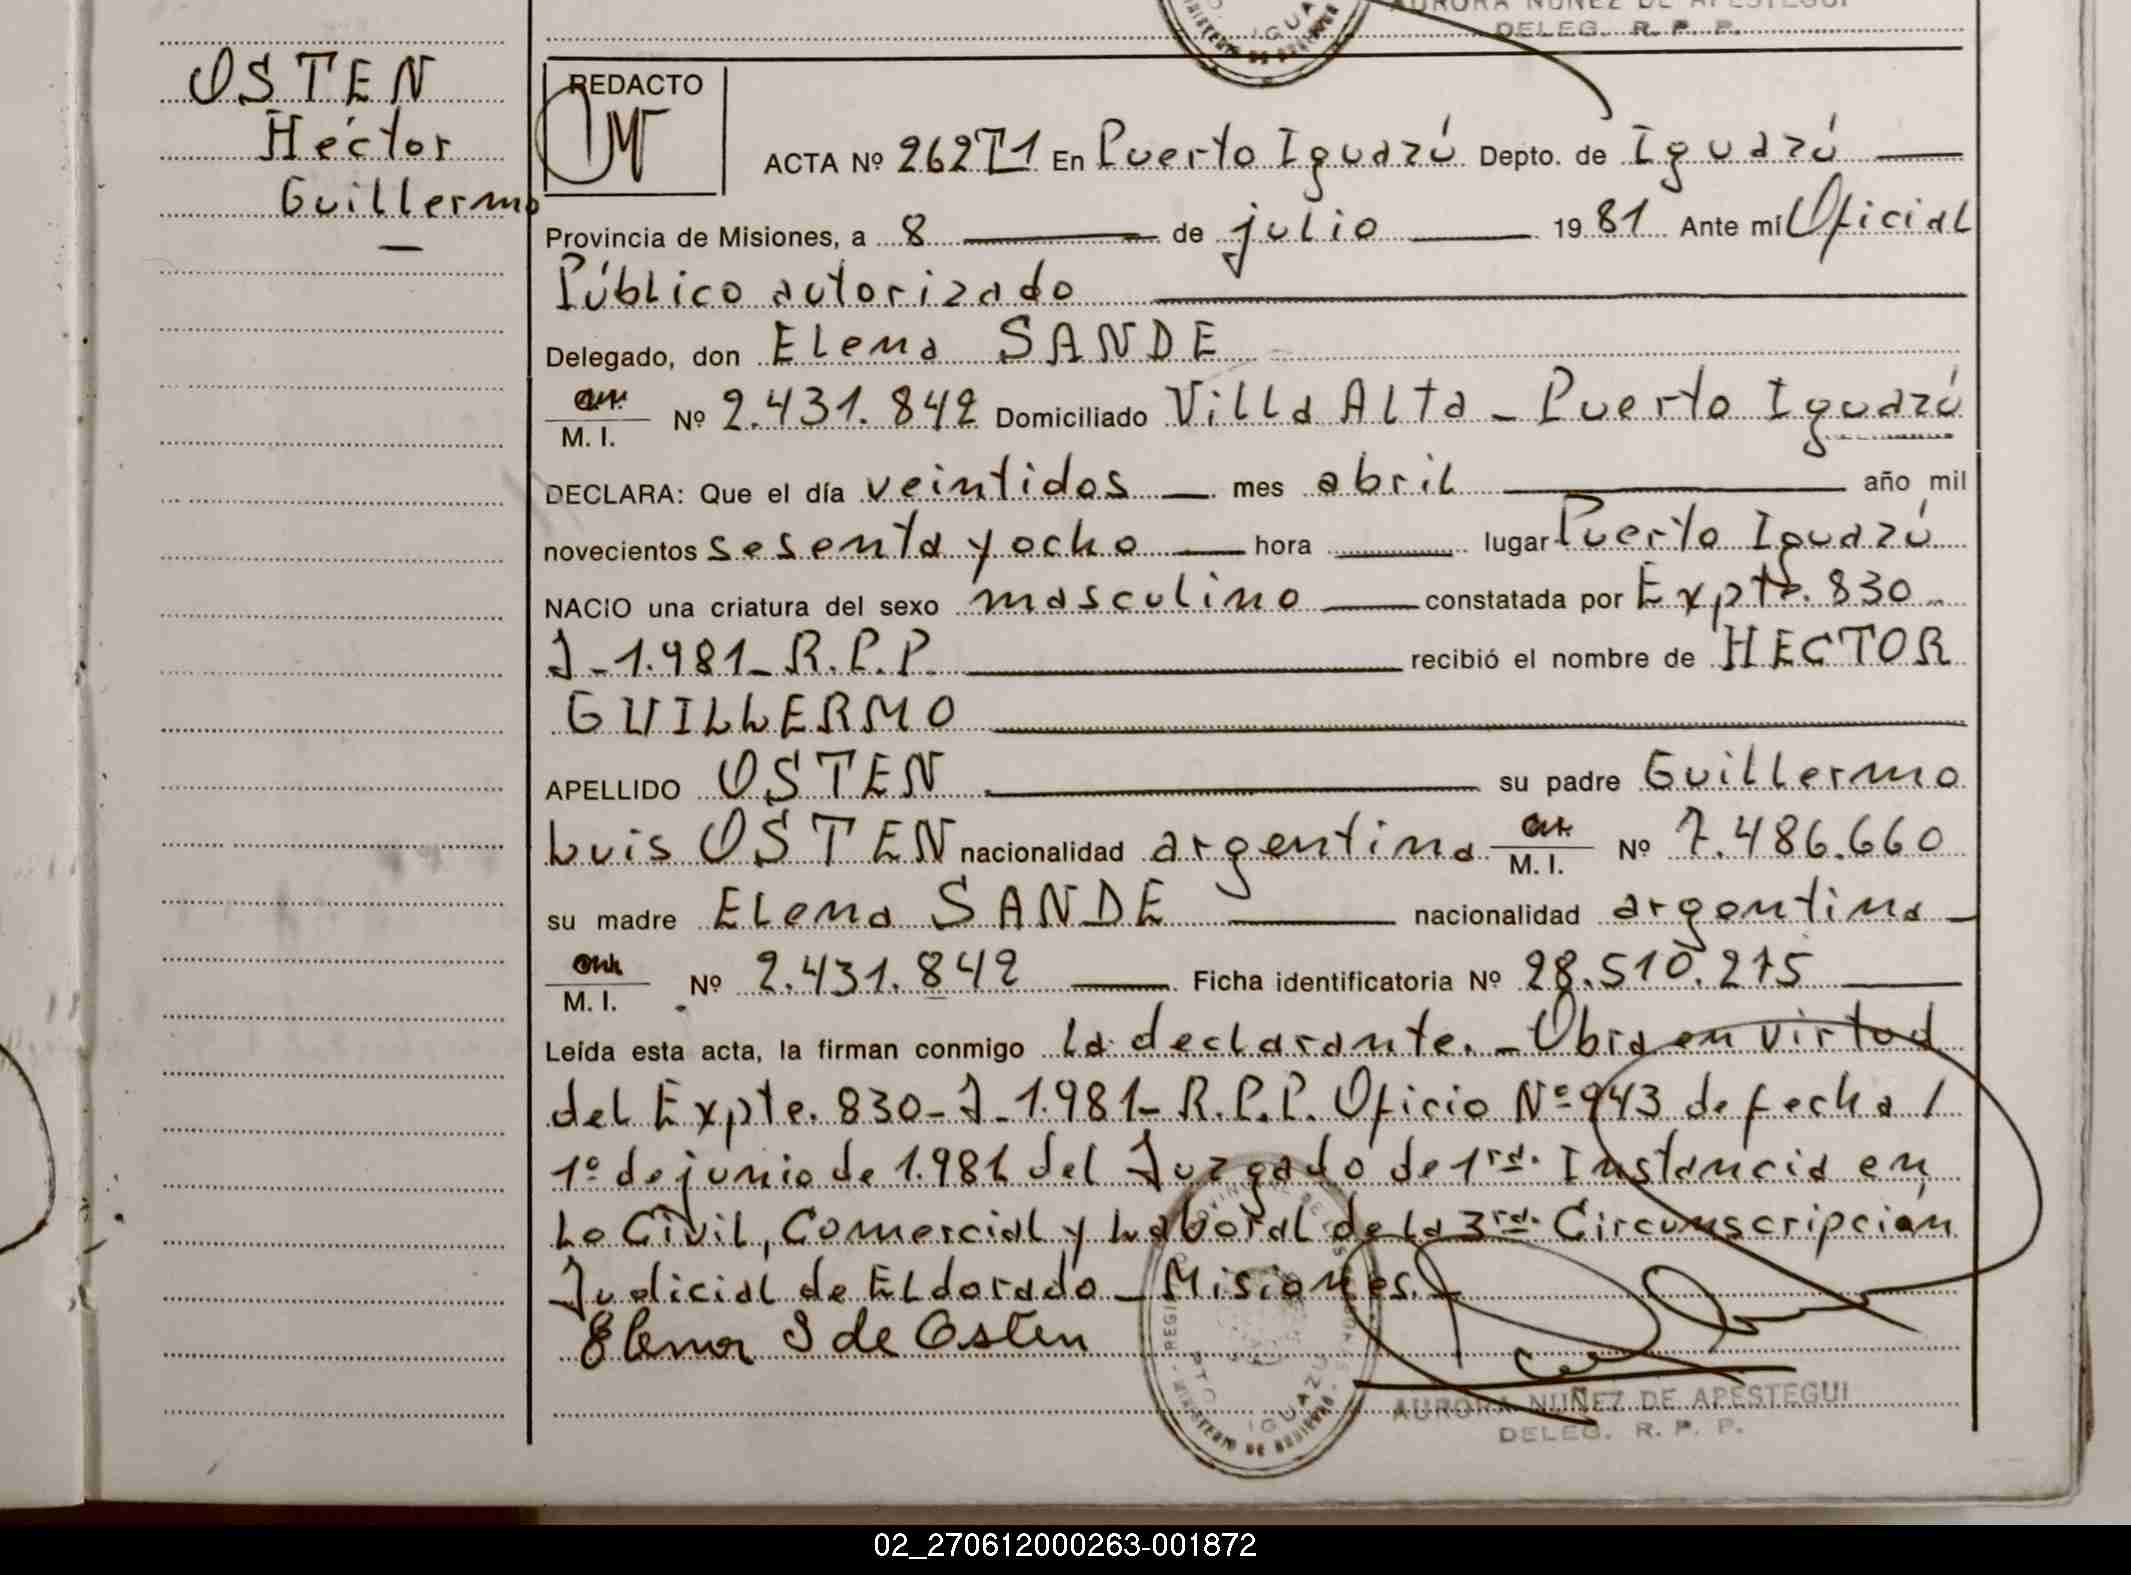 AURORA NUÑEZ DE APESTEGUI
DELEG. R. P. P.
OSTEN
Héctor
Guillermo
REDACTO
ACTA Nº 262T1 En Puerto Iguazú Depto. de Iguazú
Provincia de Misiones, a 8 de julio 1981 Ante mí Oficial
Público autorizado
Delegado, don Elena SANDE
M. I. Nº 2.431.842 Domiciliado Villa Alta - Puerto Iguazú
DECLARA: Que el día veintidos mes abril año mil
novecientos sesenta y ocho hora lugar Puerto Iguazú
NACIO una criatura del sexo masculino constatada por Expte. 830-
J-1.981-R.P.P recibió el nombre de HECTOR
GUILLERMO
APELLIDO OSTEN su padre Guillermo
Luis OSTEN nacionalidad argentina M. I. Nº 7.486.660
su madre Elena SANDE nacionalidad argentina
M. I. Nº 2.431.842 Ficha identificatoria Nº 28.510.215
Leída esta acta, la firman conmigo la declarante.- Obra en virtud
del Expte. 830-J-1.981-R.P.P. Oficio Nº 943 de fecha /
1º de junio de 1.981 del Juzgado de 1ra. Instancia en
Lo Civil, Comercial y Laboral de la 3ra. Circunscripción
Judicial de Eldorado - Misiones.-
Elena S de Osten
IGUAZU
AURORA NUÑEZ DE APESTEGUI
DELEG. R. P. P.
02_270612000263-001872